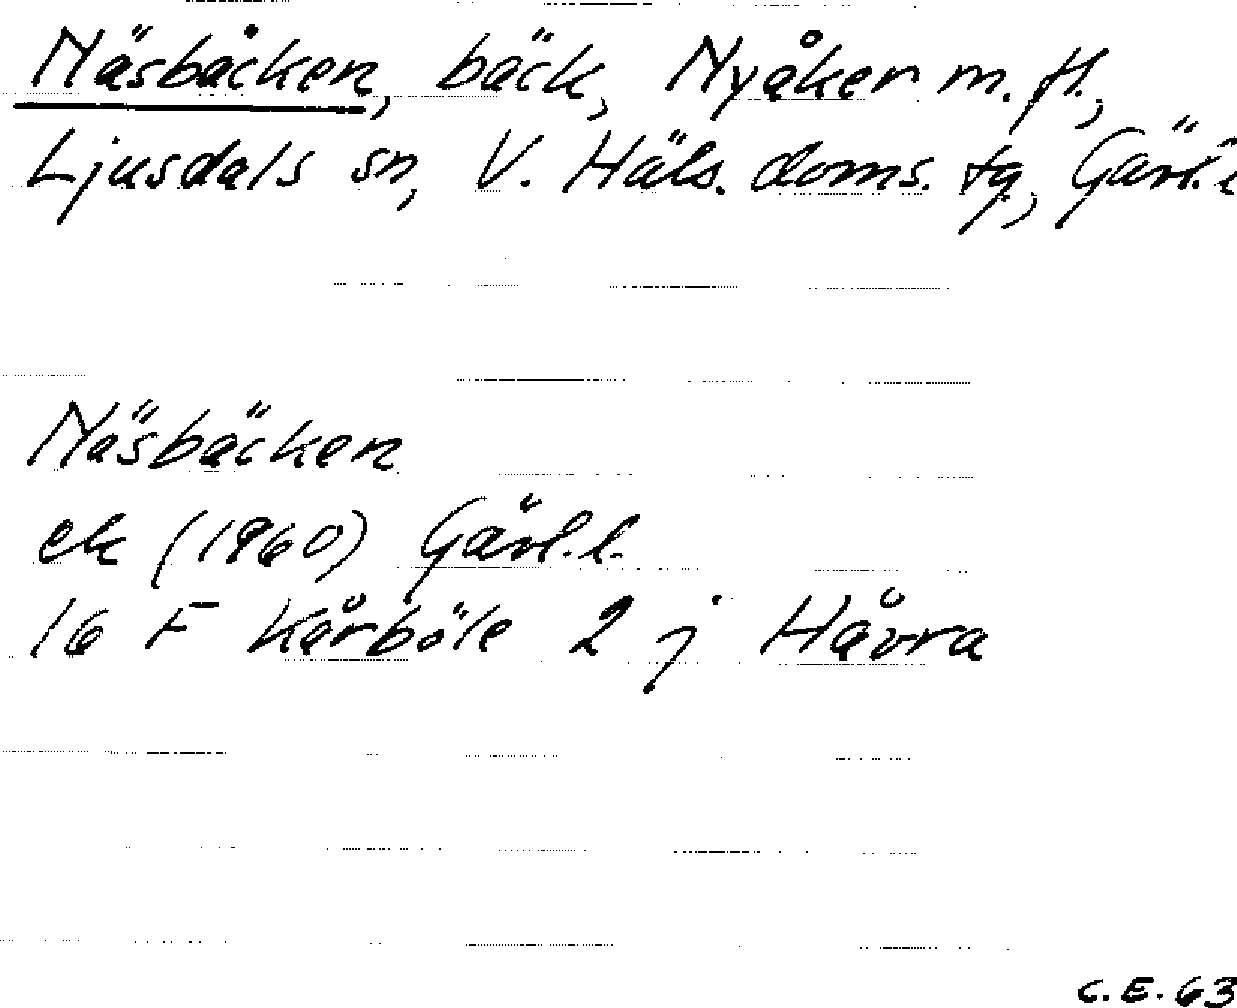 Näsbäcken, bäck, Nyåker m. fl.,
Ljusdals sn, V. Häls. doms. tg, Gävl. l
Näsbäcken
ek (1960) Gävl. l.
16 F Kårböle 2 j Håvra
C. E. 63